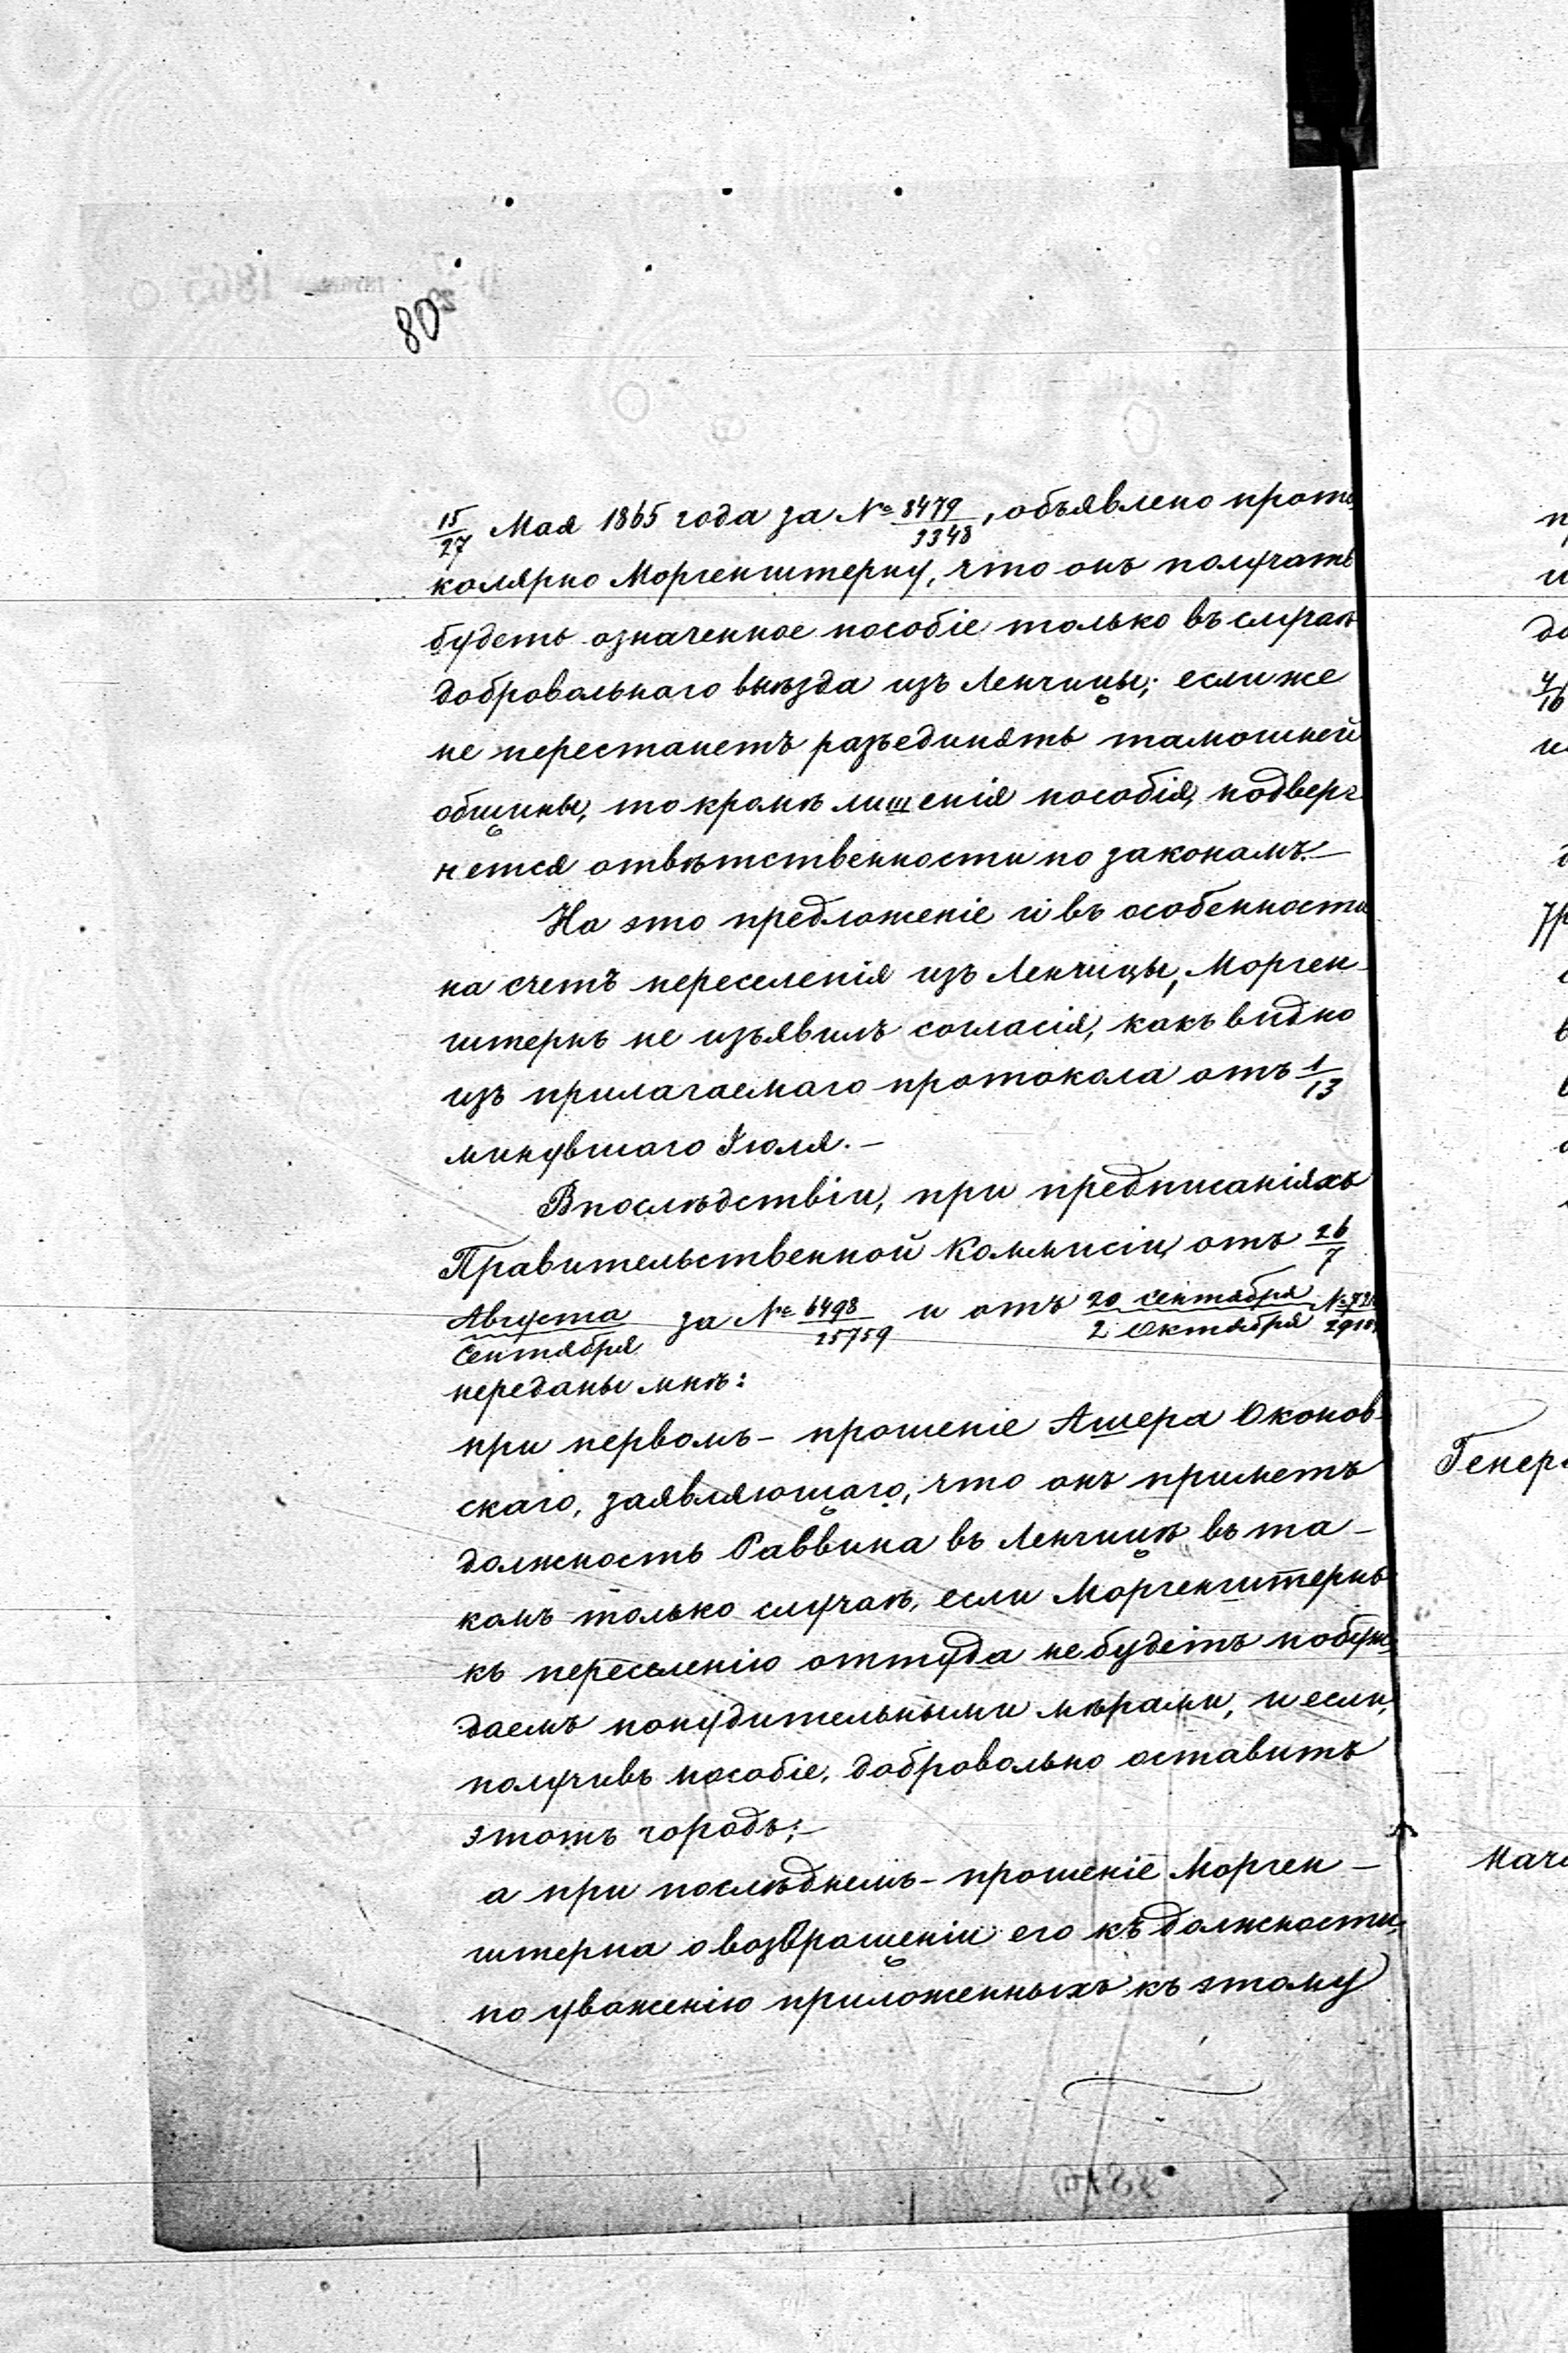 80
15/27 Мая 1865 года за № 8479/3348, объявлено прото
колярно Моргенштерну, что онъ получать
будетъ означенное пособіе только въ случаѣ
добровольнаго выѣзда изъ Ленчицы; если же
не перестанетъ разъединять тамошней
общины, то кромѣ лишенія пособія, подверг
нется отвѣтственности по законамъ.—
На это предложеніе и въ особенности
на счетъ переселенія изъ Ленчицы, Морген-
штернъ не изъявилъ согласія, какъ видно
изъ прилагаемаго протокола отъ 1/13
минувшаго Іюля.—
Впослѣдствіи, при предписаніяхъ
Правительственной Коммисіи отъ 26/7
Августа/Сентября за № 6498/25759 и отъ 20 Сентября/2 Октября
переданы мнѣ:
при первомъ - прошеніе Ашера Оконов-
скаго, заявляющаго, что онъ приметъ
должность Раввина въ Ленчицѣ въ та-
комъ только случаѣ, если Моргенштернъ
къ переселенію оттуда не будетъ побуж
даемъ понудительными мѣрами, и если,
получивъ пособіе, добровольно оставитъ
этотъ городъ;—
а при послѣднемъ - прошеніе Морген-
штерна о возвращеніи его къ должности,
по уваженію приложенныхъ къ этому
Генер